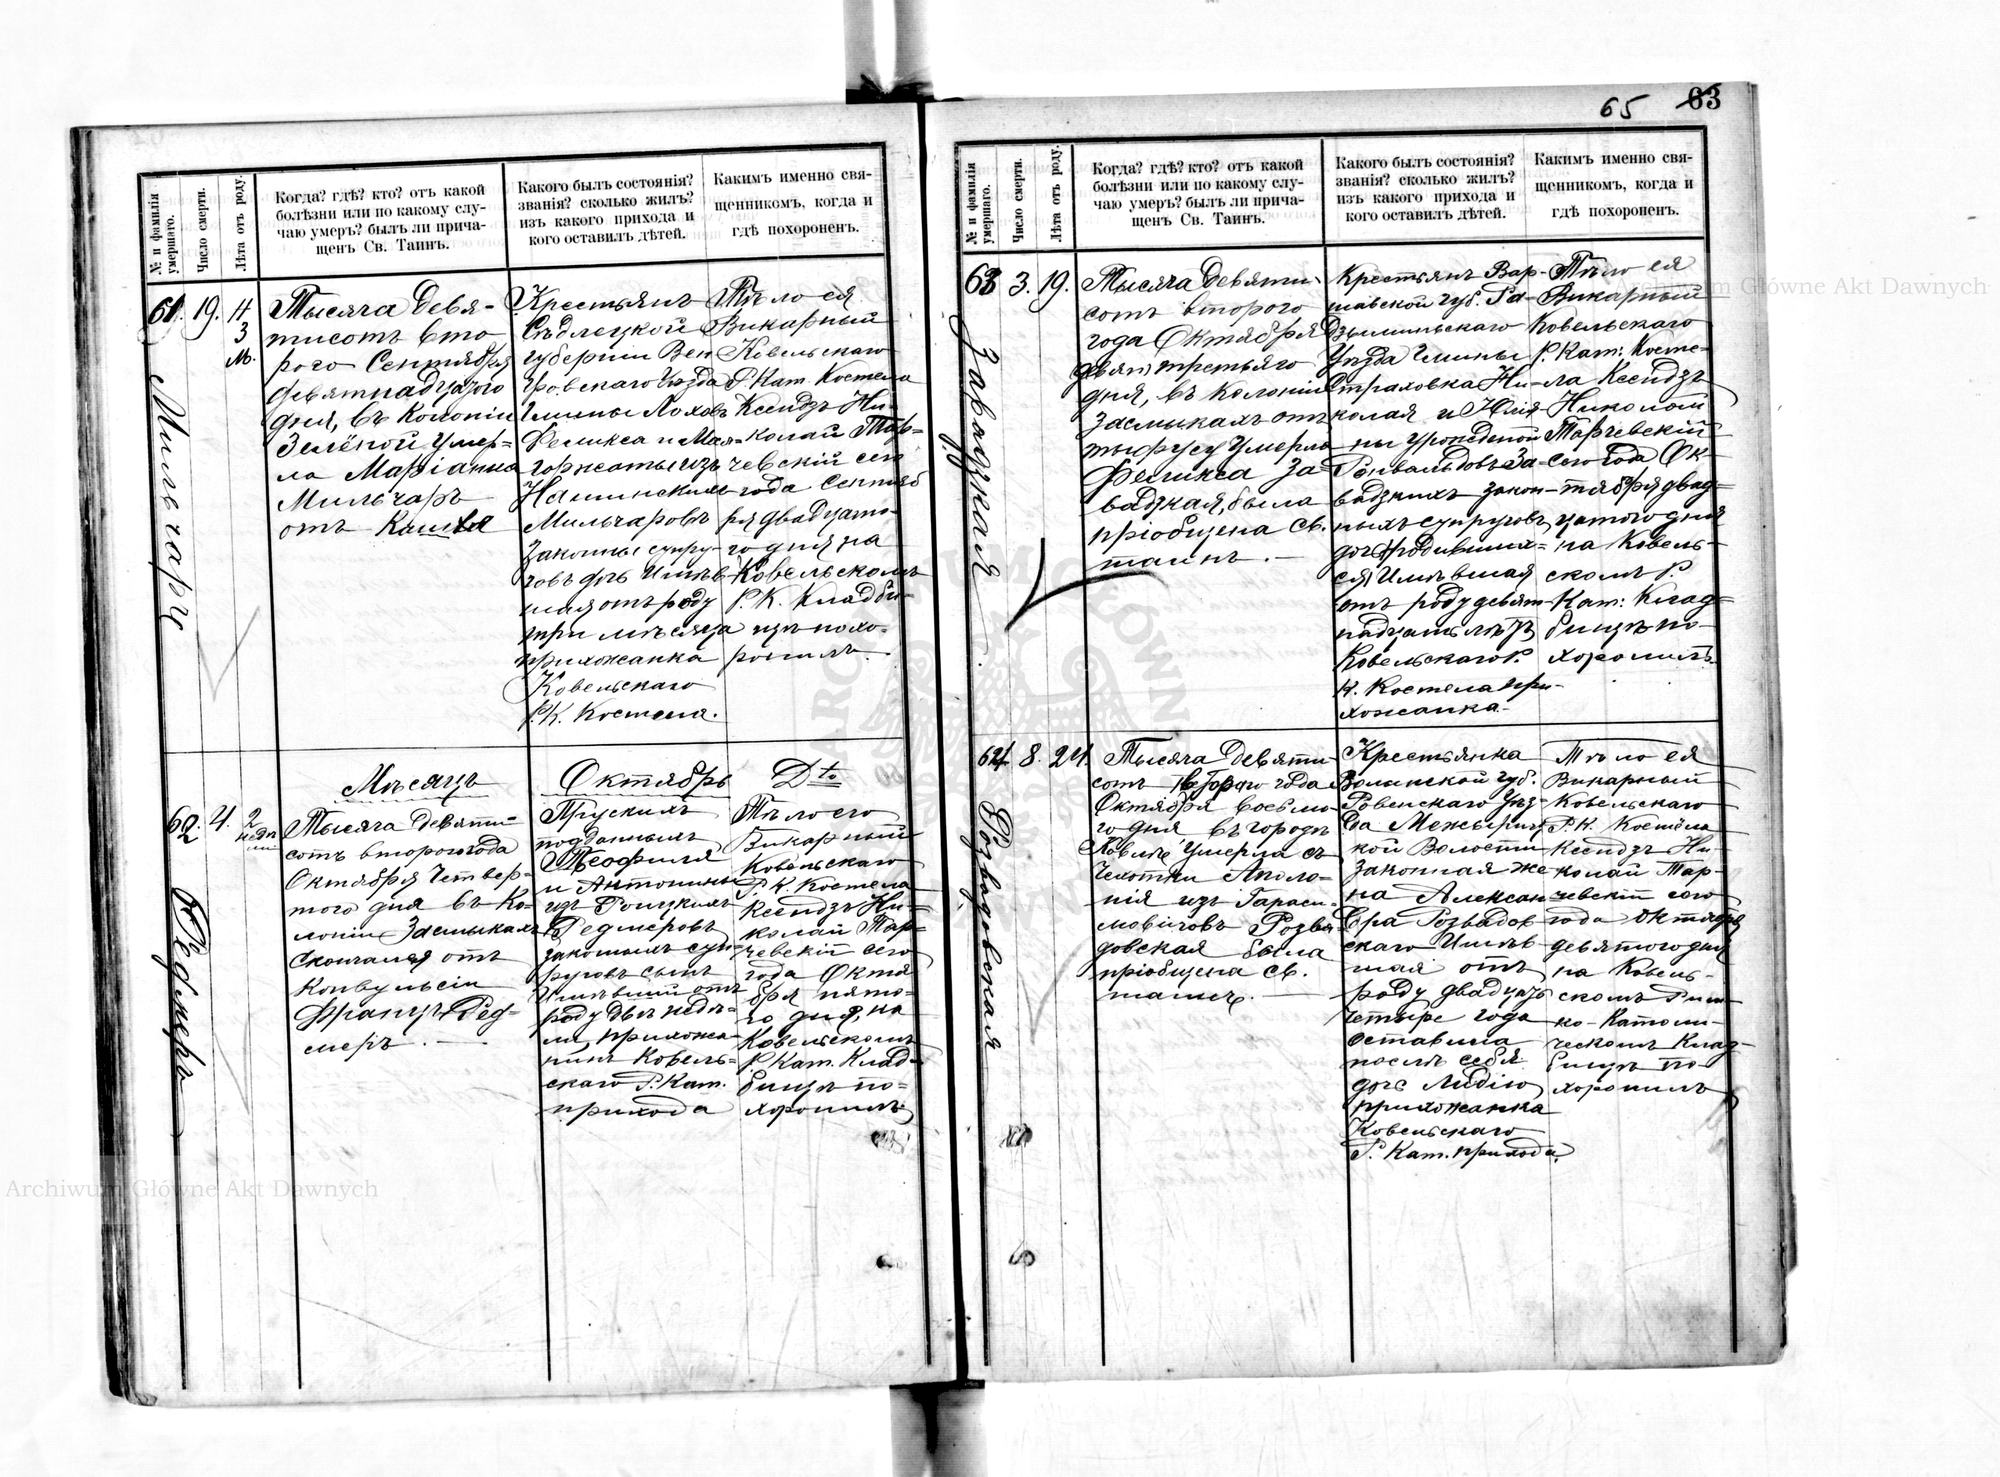 65 63
№ и фамилія умершаго.
Число смерти.
Лѣта отъ роду.
Когда? гдѣ? кто? отъ какой
болѣзни или по какому слу-
чаю умеръ? былъ ли прича-
щенъ Св. Таинъ.
Какого былъ состоянія?
званія? сколько жилъ?
изъ какого прихода и
кого оставилъ дѣтей.
Какимъ именно свя-
щенникомъ, когда и
гдѣ похороненъ.
61. 19.
3
м.
Мильчаръ
Тысяча девя-
тисотъ вто-
рого Сентября
девятнадцатого
дня, въ Колоніи
Зелёной умер-
ла Маріанна
Мильчаръ
отъ Кашля
Крестьянъ
Сѣдлецкой
губерніи Вен
гровскаго Уѣзда
Гмины Лоховъ
Феликса и Мал-
горжаты изъ
Мильчаровъ
законныхъ супру-
говъ дочь Имѣв-
шая отъ роду
три мѣсяца
прихожанка
Ковельскаго
Р.К. Костела.
Тѣло ея
Викарный
Ковельскаго
Р. Кат. Костела
Ксендзъ Ни-
колай Тар-
чевскій сего
года Сентяб
ря двадцато-
го дня на
Ковельскомъ
Р. К. Кладби-
щѣ похо-
ронилъ.
Мѣсяцъ Октябрь Dto
62. 4. 2
недѣ
ли
Редмеръ
Тысяча девяти-
сотъ второго года
Октября Четвер-
того дня въ Ко-
лоніи Засмыкахъ
Скончался отъ
Конвульсіи
Францъ Ред-
меръ.
Прускихъ
подданныхъ
Теофиля
и Антонины
изъ
Редмеровъ
законныхъ суп-
руговъ сынъ
Имѣвшій отъ
роду двѣ недѣ-
ли, прихожа-
нинъ Ковель-
скаго Р. Кат.
прихода
Тѣло его
Викарный
Ковельскаго
Р. К. Костела
Ксендзъ Ни-
колай Тар-
чевскій сего
года Октя
бря пято-
го дня, на
Ковельскомъ
Р. Кат. Клад-
бищѣ по-
хоронилъ
№ и фамилія умершаго.
Число смерти.
Лѣта отъ роду.
Когда? гдѣ? кто? отъ какой
болѣзни или по какому слу-
чаю умеръ? былъ ли прича-
щенъ Св. Таинъ.
Какого былъ состоянія?
званія? сколько жилъ?
изъ какого прихода и
кого оставилъ дѣтей.
Какимъ именно свя-
щенникомъ, когда и
гдѣ похороненъ.
63 3. 19.
Завадзкая
Тысяча девяти-
сотъ второго
года Октября
третьяго
дня, въ Колоніи
Засмыкахъ отъ
тыфусу Умерла
Феликса За-
вадзкая, была
пріобщена Св.
таинъ.
Крестьянъ Вар-
шавской губ. Ра-
дзыминьскаго
Уѣзда Гмины
Страховка Ни-
колая и Юлія-
ны урожденной
За-
вадзкихъ закон-
ныхъ супруговъ
дочь родивших-
ся Имѣвшая
отъ роду девят-
надцать лѣтъ
Ковельскаго Р.
К. Костела при-
хожанка.
Тѣло ея
Викарный
Ковельскаго
Р. Кат: Косте-
ла Ксендзъ
Николай
Тарчевскій
сего года Ок-
тября двад-
цатого дня
на Ковель-
скомъ Р.
Кат: Клад-
бищѣ по-
хоронилъ
64 8. 24.
Розвадовская
Тысяча девяти-
сотъ второго года
Октября восьмо-
го дня въ городѣ
Ковлѣ Умерла съ
Чехотки Аполо-
нія изъ Гараси-
мовичовъ Розва-
довская была
пріобщена Св.
таинъ.
Крестьянка
Волынской губ.
Ровенскаго Уѣз-
да Межыриц-
кой Волости
Законная же
на Алексан
дра Розвадов
скаго Имѣв-
шая отъ
роду двадцать
четыре года
Оставила
послѣ себя
дочь Лидію
прихожанка
Ковельскаго
Р. Кат. прихода.
Тѣло ея
Викарный
Ковельскаго
Р.К. Костёла
Ксендзъ Ни-
колай Тар-
чевскій сего
года Октября
девятого дня
на Ковель-
скомъ Рим-
ко-Католи-
ческомъ Клад-
бищѣ по-
хоронилъ
Archiwum Główne Akt Dawnych
Archiwum Główne Akt Dawnych